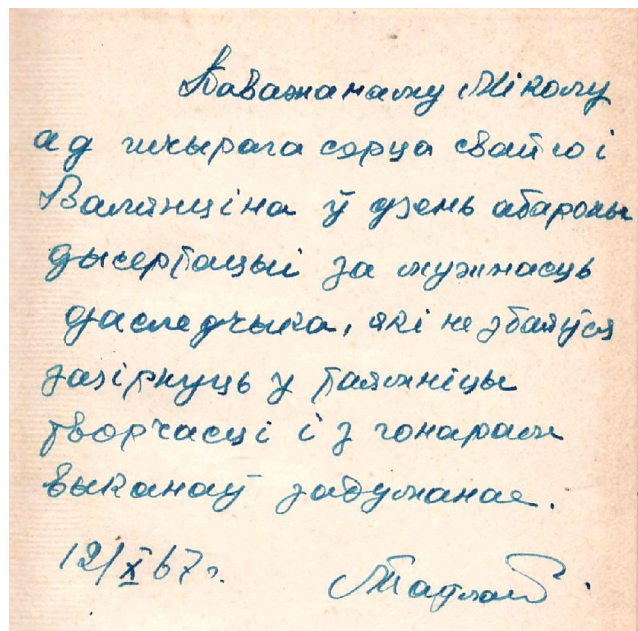 Паважанаму Міколу
ад шчырага сэрца свайго і
Валянціна ў дзень абароны
дысертацыі за мужнасць
даследчыка, які не збаяўся
зазірнуць у таямніцы
творчасці і з гонарам
выканаў задуманае.
12/X 67 г.